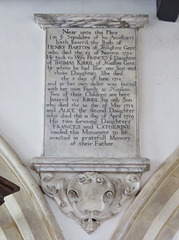 Near unto this Place
(in ye Sepulchre of his Ancestors)
lyeth Interred the Body of
HENRY BARTON of Gent.
who died the 23 of 1752
He took to Wife FRANCES Daughter
of THOMAS KIRRIL of Gent.
by whom he had Issue one Son and
three Daughters. She died
the 2 of June 1724
and at her own desire was buried
with her own Family in
Two of their Children are here
Interred viz KIRRIL his only Son
who died the 12 day of May 1713
and ALICE the second Daughter
who died the 21 day of April 1729
His two surviving Daughters
FRANCES and CATHERINE
caused this Monument to be
erected in gratefull Memory
of their Father